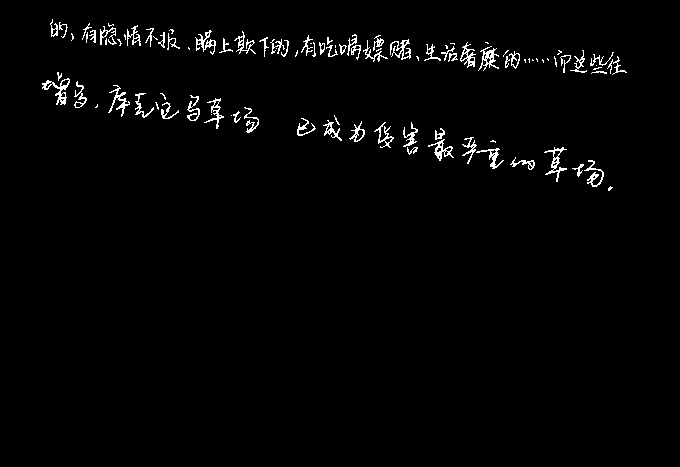 的，有隐情不报、瞒上欺下的，有吃喝嫖赌、生活奢靡的……而这些往
增多，库克它乌草场 已成为侵害最严重的草场。